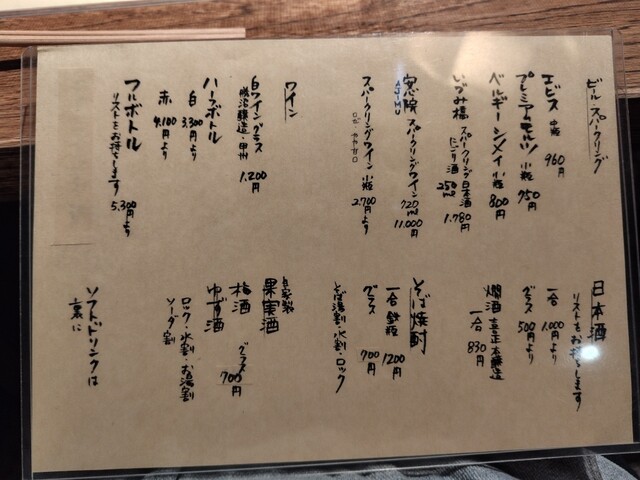 ビール・スパークリング
エビス 中瓶 960円
プレミアムモルツ 小瓶 750円
ベルギーシメイ 小瓶 800円
いづみ橋 スパークリング日本酒
にごり酒 250ml 1.780円
安心院 スパークリングワイン
AJIMU
720ml 11.000円
スパークリングワイン 小瓶 2.700円より
ロゼ・やや甘口
ワイン
白ワイン グラス 1.200円
勝沼醸造・甲州
ハーフボトル
白 3.300円より
赤 4.100円より
フルボトル 5.300円より
リストをお持ちします
日本酒
リストをお持ちします
一合 1.000円より
グラス 500円より
燗酒 喜正 本醸造
一合 830円
そば焼酎
一合 鉄瓶 1200円
グラス 700円
そば湯割・水割・ロック
自家製
果実酒
梅酒
ゆず酒
グラス 700円
ロック・水割・お湯割
ソーダ割
ソフトドリンクは
裏に